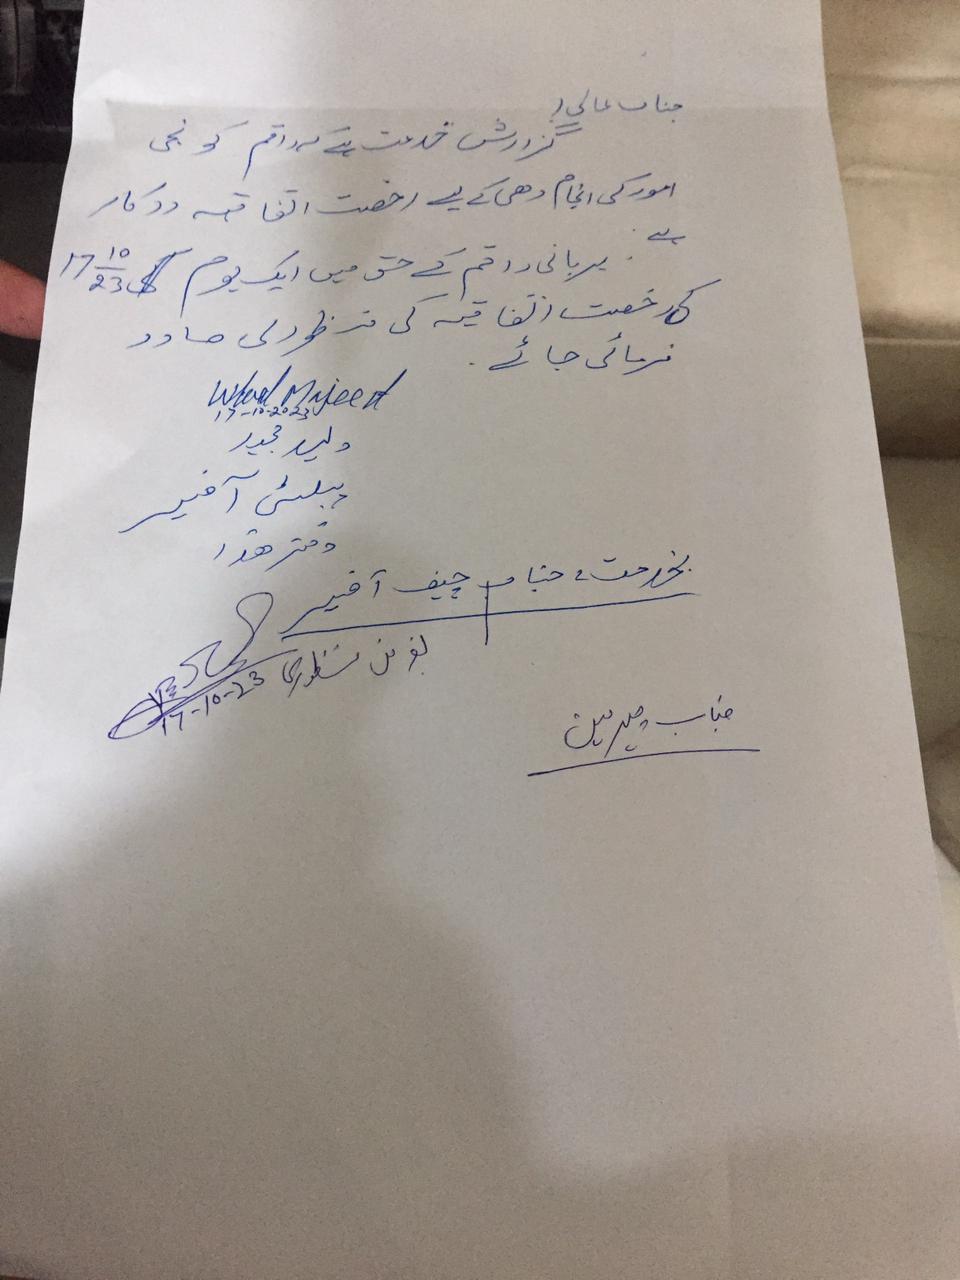 جناب عالی!
گزارش خدمت ہے کہ راقم کو نجی
امور کی انجام دھی کے لیے رخصت اتفاقیہ درکار
ہے۔
مہربانی راقم کے حق میں ایک یوم 17/10/23
کی رخصت اتفاقیہ کی منظوری صادر
فرمائی جائے۔
Waleed Majeed
17-10-2023
ولید مجید
پبلسٹی آفیسر
دفتر ھذا
بخدمت، جناب چیف آفیسر
بغرض منظوری
17-10-23
جناب چیرمین